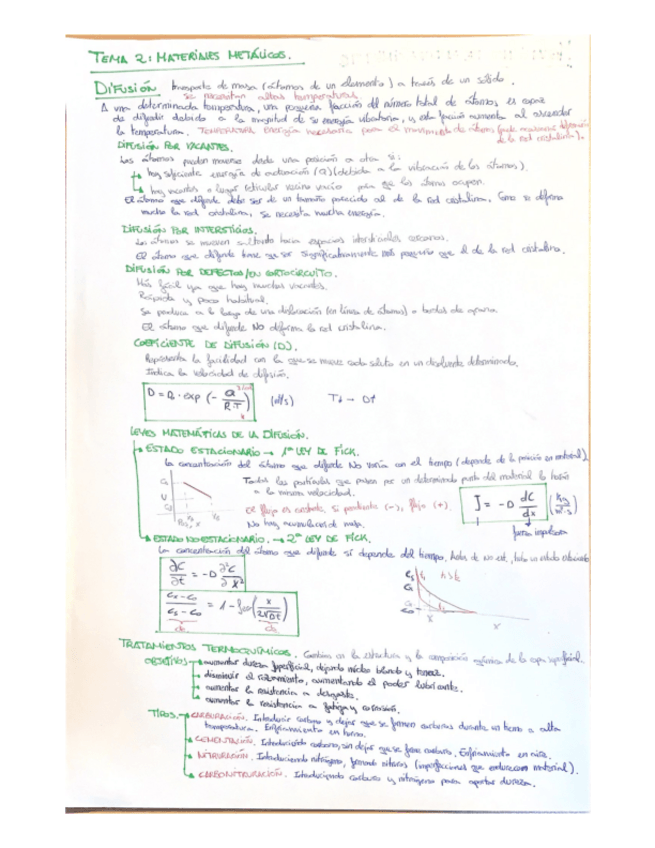 TEMA 2: MATERIALES METÁLICOS.
DIFUSIÓN transporte de masa (átomos de un elemento) a través de un sólido.
se necesitan altas temperaturas.
A una determinada temperatura, una pequeña fracción del número total de átomos es capaz
de difundir debido a la magnitud de su energía vibratoria, y esta fracción aumenta al ascender
la temperatura. TEMPERATURA energía necesaria para el movimiento de átomos
de la red cristalina).
DIFUSIÓN POR VACANTES.
Los átomos pueden moverse desde una posición a otra si:
hay suficiente energía de activación (Q) (debida a la vibración de los átomos).
hay vacantes o lugar reticular vecino vacío para que los átomos ocupen.
El átomo que difunde debe ser de un tamaño parecido al de la red cristalina. Como se deforma
mucho la red cristalina, se necesita mucha energía.
DIFUSIÓN POR INTERSTICIOS.
Los átomos se mueven saltando hacia espacios intersticiales cercanos.
El átomo que difunde tiene que ser significativamente más pequeño que el de la red cristalina.
DIFUSIÓN POR DEFECTOS/EN CORTOCIRCUITO.
Más fácil ya que hay muchas vacantes.
Rápida y poco habitual.
Se produce a lo largo de una dislocación (en línea de átomos) o bordes de grano.
El átomo que difunde NO deforma la red cristalina.
COEFICIENTE DE DIFUSIÓN (D).
Representa la facilidad con la que se mueve cada soluto en un disolvente determinado.
Indica la velocidad de difusión.
D = D₀ · exp (- Q / R·T) (m²/s)
LEYES MATEMÁTICAS DE LA DIFUSIÓN.
ESTADO ESTACIONARIO → 1ª LEY DE FICK.
La concentración del átomo que difunde NO varía con el tiempo (depende de la posición en material)
Todas las partículas que pasan por un determinado punto del material lo harán
a la misma velocidad.
El flujo es constante, si pendiente (-), flujo (+).
No hay acumulación de masa.
J = - D dC/dx (Kg/m²·s)
fuerza impulsora
ESTADO NO ESTACIONARIO. → 2ª LEY DE FICK.
La concentración del átomo que difunde sí depende del tiempo.
∂C/∂t = -D ∂²C/∂x²
Cx - C₀ / Cs - C₀ = 1 - fer (x / 2√Dt)
Cs
C₀
x
x
TRATAMIENTOS TERMOQUÍMICOS. Cambios en la estructura y la composición química de la capa superficial.
OBJETIVOS → aumentar dureza superficial, dejando núcleo blando y tenaz.
disminuir el rozamiento, aumentando el poder lubricante.
aumentar la resistencia a desgaste.
aumentar la resistencia a fatiga y corrosión.
TIPOS. → CARBURACIÓN. Introducir carbono y dejar que se formen carburos durante un horno a alta
temperatura. Enfriamiento en horno.
CEMENTACIÓN. Introduciendo carbono, sin dejar que se forme carburo. Enfriamiento en aire.
NITRURACIÓN. Introduciendo nitrógeno, formando nitruros (imperfecciones que endurecen material).
CARBONITRURACIÓN. Introduciendo carburo y nitrógeno para aportar dureza.